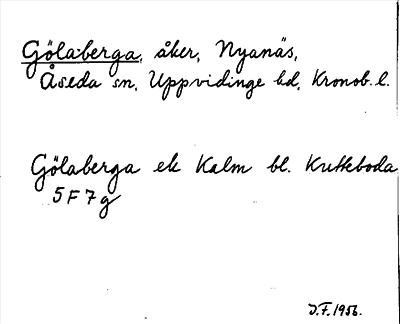 Gölaberga, åker, Nyanäs,
Åseda sn, Uppvidinge hd, Kronob. l.
Gölaberga ek Kalm bl. Kutteboda
5 F 7 g
J.F. 1956.